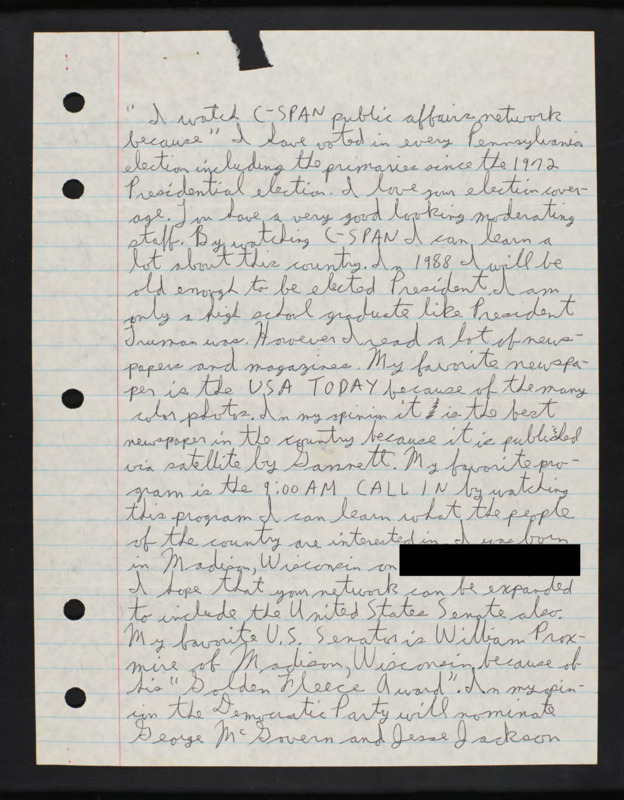 " I watch C-SPAN public affairs network
because" I have voted in every Pennsylvania
election including the primaries since the 1972
Presidential election. I love your election cover-
age. You have a very good looking moderating
staff. By watching C-SPAN I can learn a
lot about this country. In 1988 I will be
old enough to be elected President. I am
only a high school graduate like President
Truman was. However I read a lot of news-
papers and magazines. My favorite newspa-
per is the USA TODAY because of the many
color photos. In my opinion it is the best
newspaper in the country because it is published
via satellite by Gannett. My favorite pro-
gram is the 9:00 AM CALL IN by watching
this program I can learn what the people
of the country are interested in. I was born
in Madison, Wisconsin on
I hope that your network can be expanded
to include the United States Senate also.
My favorite U.S. Senator is William Prox-
mire of Madison, Wisconsin, because of
his "Golden Fleece Award". In my opin-
ion the Democratic Party will nominate
George McGovern and Jesse Jackson